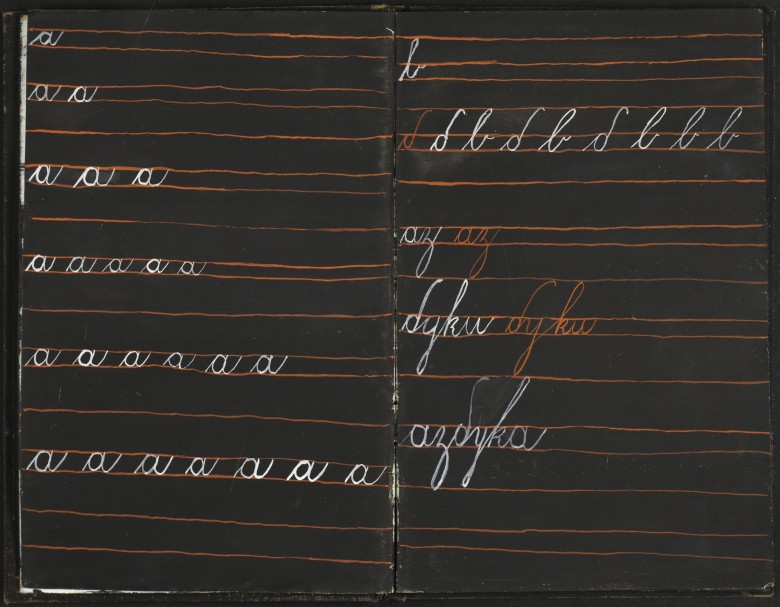 а
а а
а а а
а а а а а
а а а а а а
а а а а а а а
в
б б в б в б в в в
аз аз
буки буки
азбука